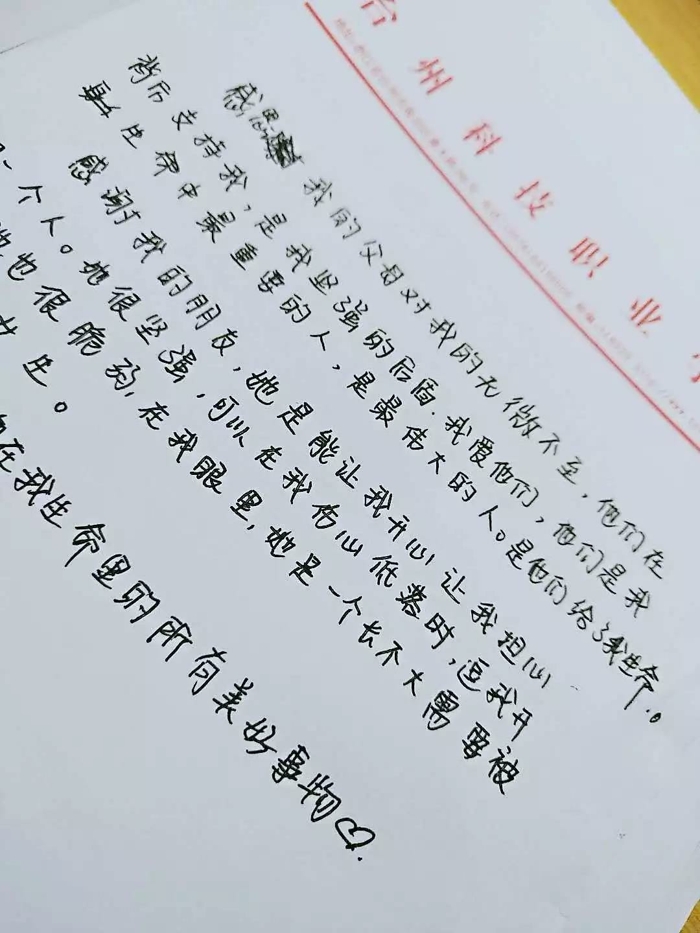 台州科技职业学
感恩我的父母对我的无微不至，他们在
背后支持我，是我坚强的后盾．我爱他们，他们是我
生命中最重要的人，是最伟大的人。是他们给了我生命。
感谢我的朋友，她是能让我开心让我担心
一个人。她很坚强，可以在我伤心低落时，逗我开
她也很脆弱，在我眼里，她是一个长不大需要被
生。
在我生命里的所有美好事物♡.